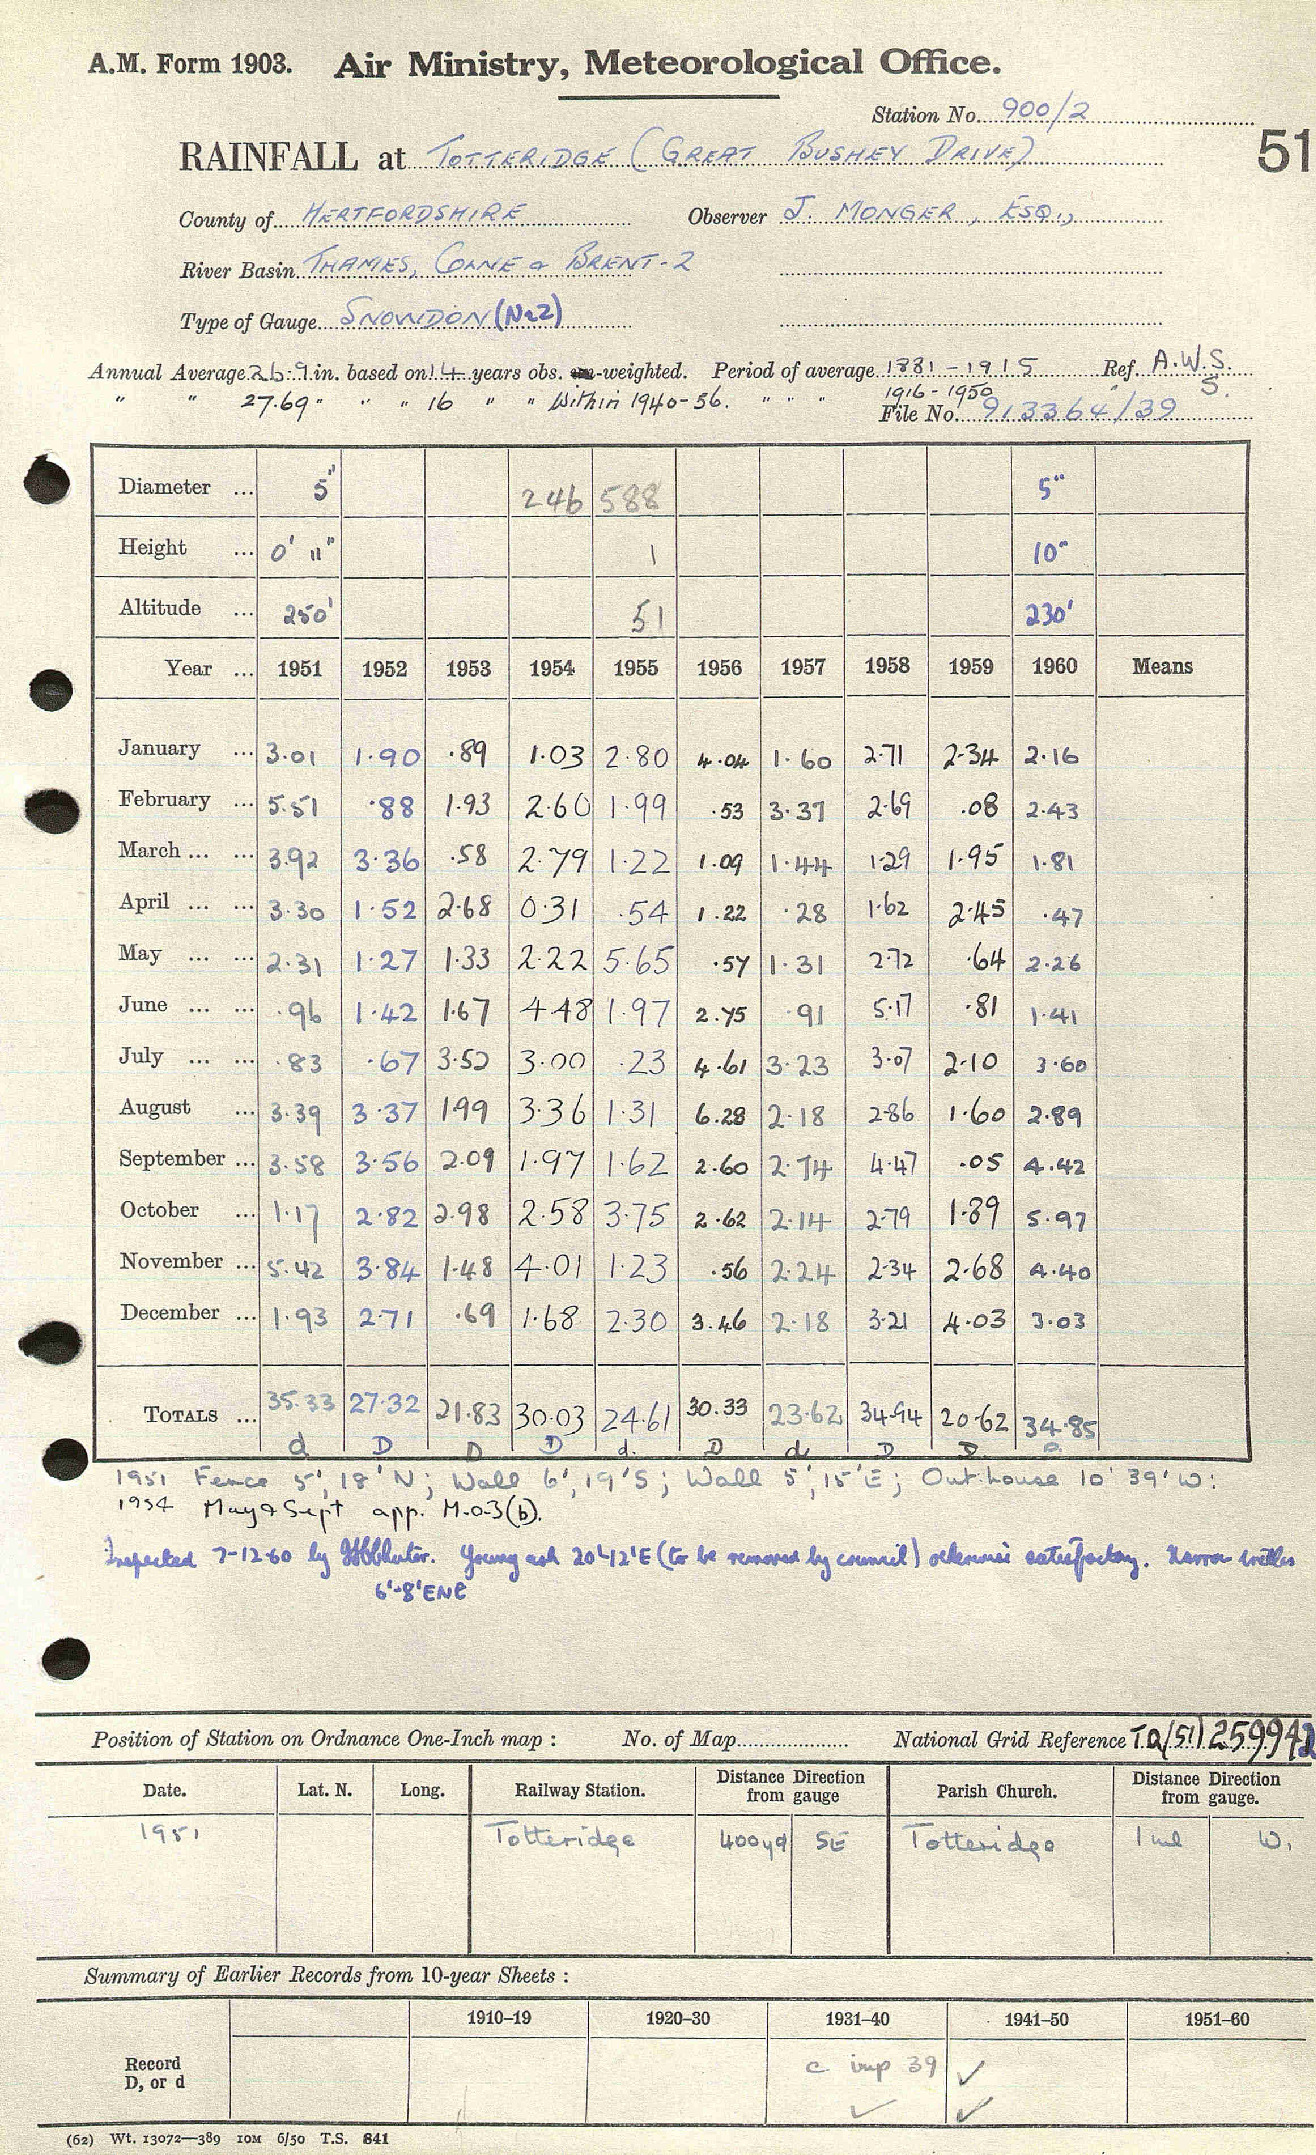 A.M. Form 1903. Air Ministry, Meteorological Office.
Station No. 900/2
51
RAINFALL at TOTTERIDGE (GREAT BUSHEY DRIVE)
County of HERTFORDSHIRE Observer J. MONGER, ESQ.,
River Basin THAMES, COLNE & BRENT-2
Type of Gauge SNOWDON (No2)
Annual Average 26.9 in. based on 14 years obs. -weighted. Period of average 1881-1915 Ref. A.W.S.
" " 27.69 " " " 16 " " Within 1940-56. " " " 1916-1950 " S.
File No. 913364/39
Diameter ... 5" 246 588 5"
Height ... 0' 11" 1 10"
Altitude ... 250' 51 230'
Year ... 1951 1952 1953 1954 1955 1956 1957 1958 1959 1960 Means
January ... 3.01 1.90 .89 1.03 2.80 4.04 1.60 2.71 2.34 2.16
February ... 5.51 .88 1.93 2.60 1.99 .53 3.37 2.69 .08 2.43
March ... ... 3.92 3.36 .58 2.79 1.22 1.09 1.44 1.29 1.95 1.81
April ... ... 3.30 1.52 2.68 0.31 .54 1.22 .28 1.62 2.45 .47
May ... ... 2.31 1.27 1.33 2.22 5.65 .57 1.31 2.72 .64 2.26
June ... ... .96 1.42 1.67 4.48 1.97 2.75 .91 5.17 .81 1.41
July ... ... .83 .67 3.52 3.00 .23 4.61 3.23 3.07 2.10 3.60
August ... 3.39 3.37 1.99 3.36 1.31 6.28 2.18 2.86 1.60 2.89
September ... 3.58 3.56 2.09 1.97 1.62 2.60 2.74 4.47 .05 4.42
October ... 1.17 2.82 2.98 2.58 3.75 2.62 2.14 2.79 1.89 5.97
November ... 5.42 3.84 1.48 4.01 1.23 .56 2.24 2.34 2.68 4.40
December ... 1.93 2.71 .69 1.68 2.30 3.46 2.18 3.21 4.03 3.03
TOTALS ... 35.33 27.32 21.83 30.03 24.61 30.33 23.62 34.94 20.62 34.85
d D D D d. D d. D D
1951 Fence 5', 18'N; Wall 6', 19'S; Wall 5', 15'E; Outhouse 10' 39'W:
1954 May & Sept app. M.O.3(b).
Inspected 7-12-60 by Young ash 20' 12'E (to be removed by council) otherwise satisfactory. Narrow
6'-8'ENE
Position of Station on Ordnance One-Inch map : No. of Map National Grid Reference TQ/(51) 259942
Date. Lat. N. Long. Railway Station. Distance Direction from gauge Parish Church. Distance Direction from gauge.
1951 Totteridge 400yd SE Totteridge 1 ml W.
Summary of Earlier Records from 10-year Sheets :
1910–19 1920–30 1931–40 1941–50 1951–60
Record D, or d c imp 39 ✓
✓ ✓
(62) Wt. 13072—389 10M 6/50 T.S. 841